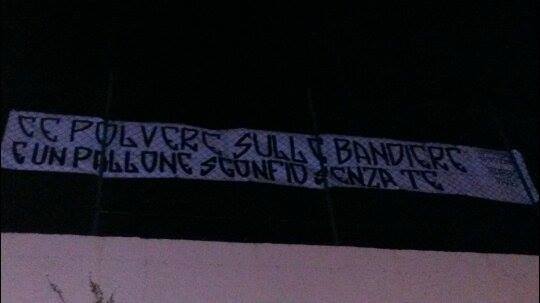 CE POLVERE SULLE BANDIERE
E UN PALLONE SGONFIO SENZA TE